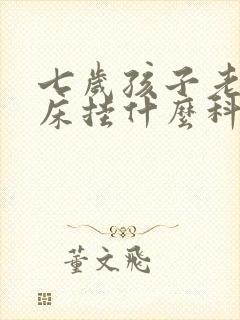 七歲孩子老
床挂什麼科
董文飛